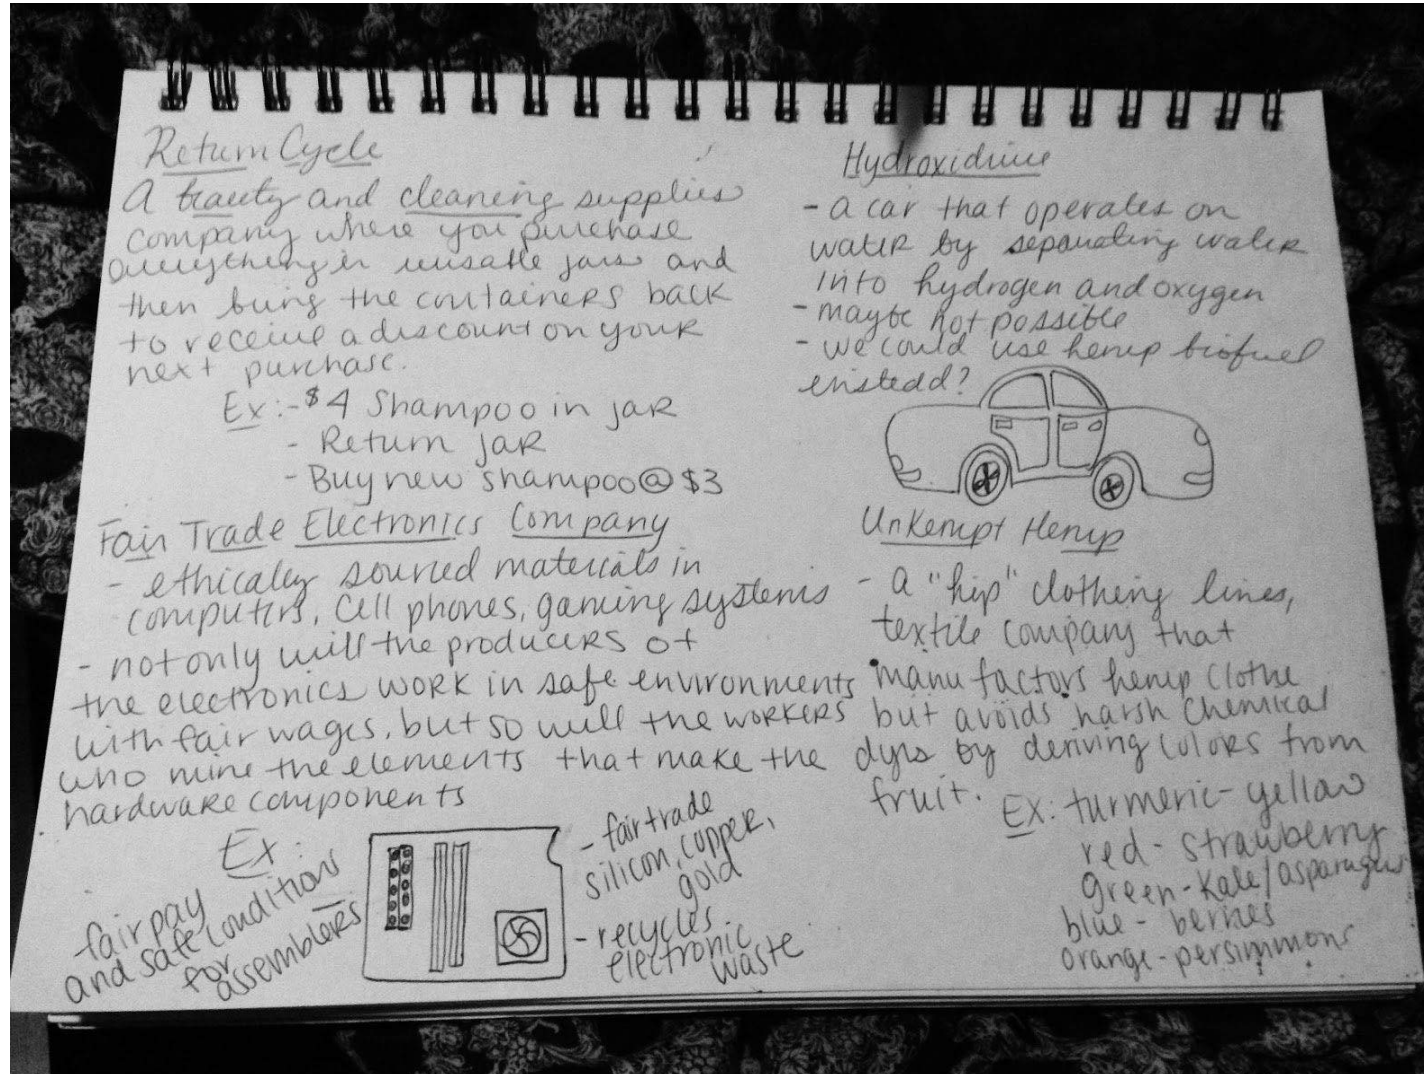 Return Cycle
A beauty and cleaning supplies
company where you purchase
everything in reusable jars and
then bring the containers back
to receive a discount on your
next purchase.
Ex:-$4 Shampoo in jar
- Return jar
- Buy new shampoo@ $3
Fair Trade Electronics Company
- ethically sourced materials in
computers, cell phones, gaming systems
- not only will the producers of
the electronics work in safe environments
with fair wages, but so will the workers
who mine the elements that make the
hardware components
Ex:
fair pay
and safe conditions
for
assemblers
- fair trade
silicon, copper,
gold
- recycles
electronic
waste
Hydroxidrive
- a car that operates on
water by separating water
into hydrogen and oxygen
- maybe not possible
- we could use hemp biofuel
enstedd?
Unkempt Hemp
- a "hip" clothing lines,
textile company that
manufactors hemp clothe
but avoids harsh chemical
dyes by deriving colors from
fruit.
Ex: turmeric - yellow
red - strawberry
green - Kale/asparagus
blue - berries
orange - persimmons